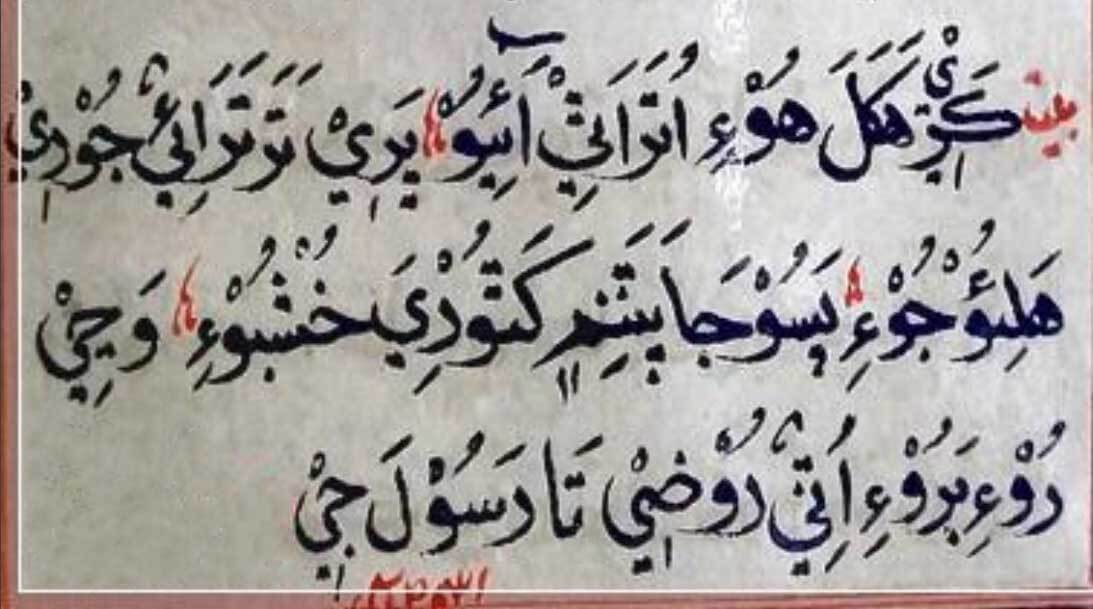 بيت ڪَرِيْ هَڪَلَ هُوْءِ اُتَرَائِيْ آئِيُوْ؍ پَرِيْ تَرتَرَائِيْ جُوْرِيْ
هَلِئُوْ جُوْءِ؍ پَسُوْ جَا پَٽَنِ ۾ ڪَتُوْرِيَ خُشبُوْءِ؍ وَڃِيْ
رُوْءِ بَرُوْءِ اُتِيْ رُوْضِيْ تَا رَسُوْلَ جِيْ